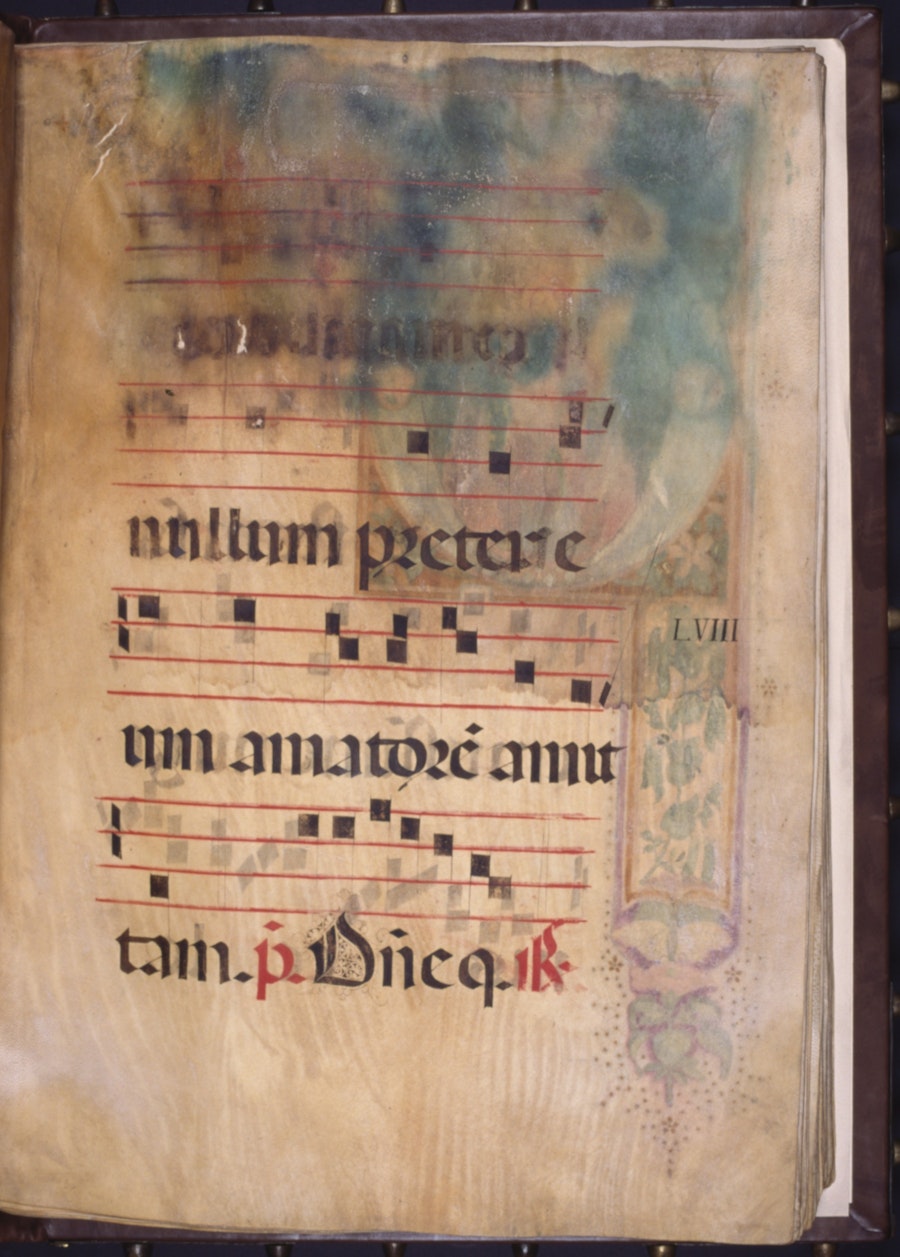 nullum preterie
LVIII
um amatorē amit
tam. p̄. Dn̄e q. R.